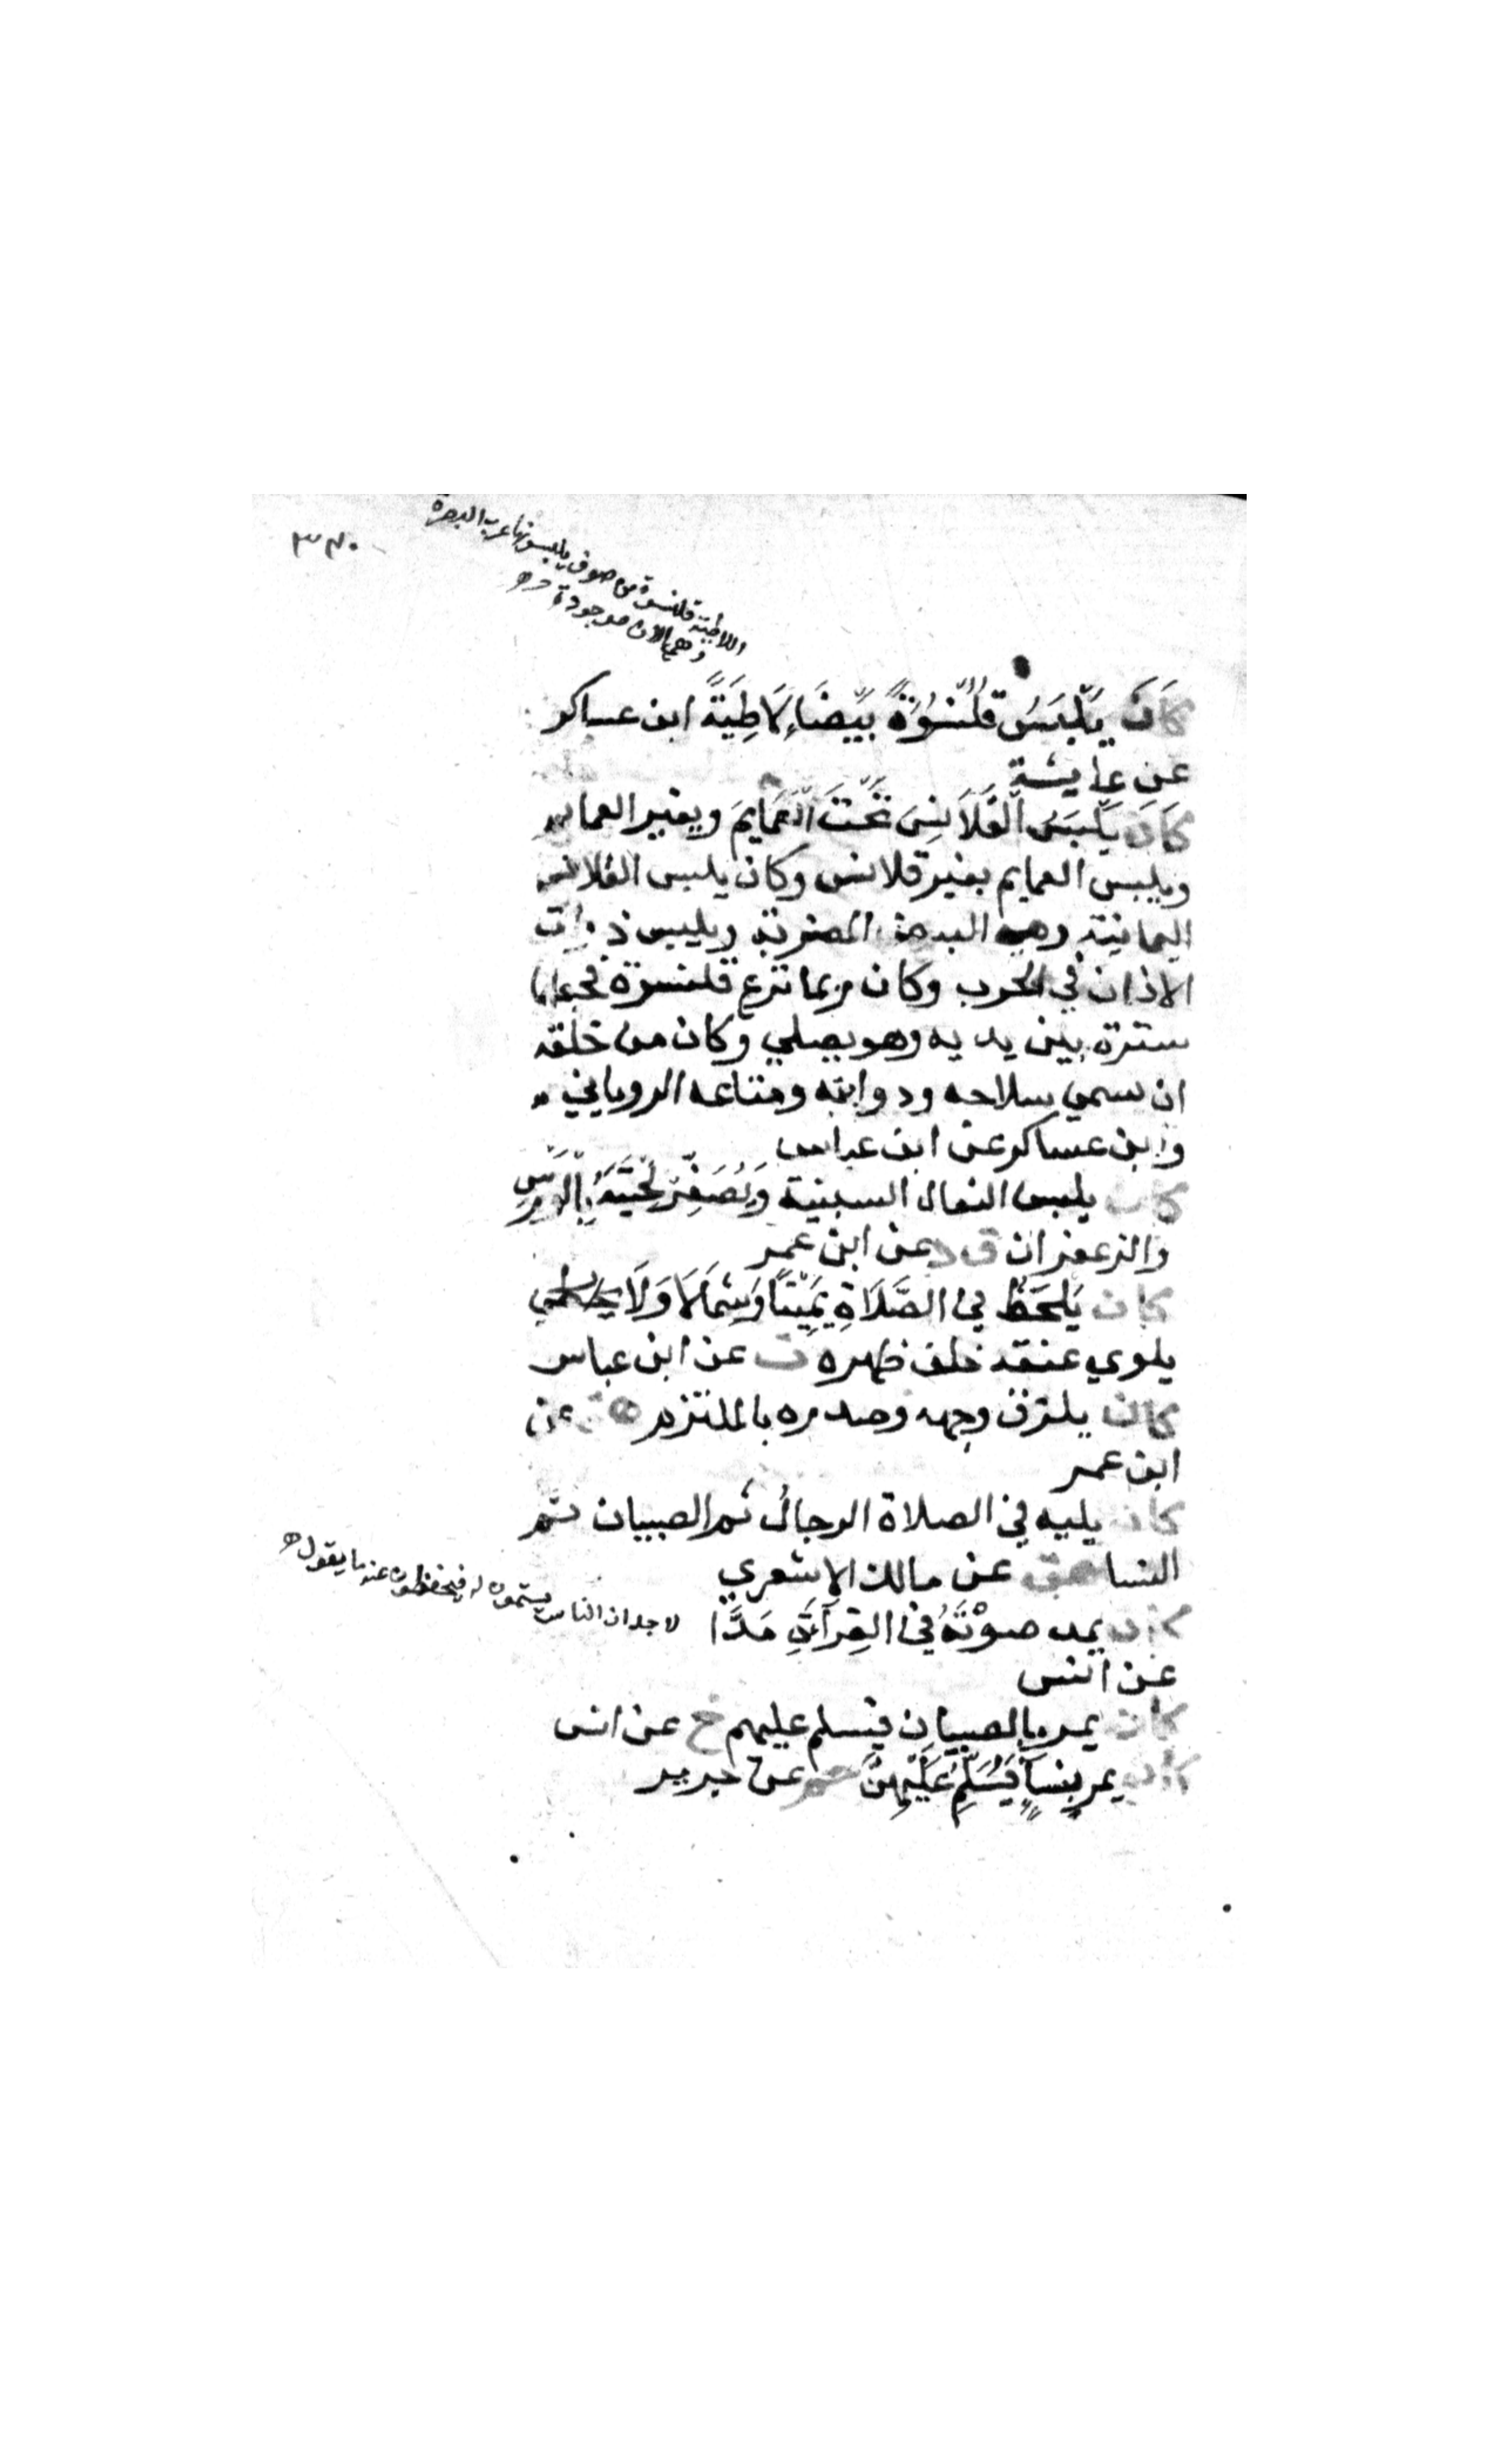 اللاطية قلنسوة من صوف يلبسونها عرب البصرة
وهي الان موجودة اه
كَانَ يَلْبَسُ قَلَنْسُوَةً بَيْضَاءَ لَاطِيَةً ابن عساكر
عن عايشة
كَانَ يَلْبَسُ الْقَلَانِسَ تَحْتَ الْعَمَايِمَ وبغير العمايم
ويلبس العمايم بغير قلانس وكان يلبس القلانس
اليمانية وهي البيض المضربة ويلبس ذوات
الاذان في الحرب وكان ربما نزع قلنسوة فجعلها
سترة بين يديه وهو يصلي وكان من خلقه
ان يسمي سلاحه ودوابه ومتاعه الروياني
وابن عساكر عن ابن عباس
كان يلبس النعال السبتية وَيُصَفِّرُ لِحْيَتَهُ بِالْوَرْسِ
والزعفران ق د عن ابن عمر
كان يَلْحَظُ في الصَّلَاةِ يَمِيْنًا وَشِمَالًا وَلَا
يلوي عنقه خلف ظهره ت عن ابن عباس
كان يلزق وجهه وصدره بالملتزم هق عن
ابن عمر
كان يليه في الصلاة الرجالُ ثم الصبيان ثم
النسا هق عن مالك الاشعري
كان يمد صَوْتَهُ في القِرَآءَةِ مَدًّا لاجل ان الناس يستمعون له فيحفظون عنه ما يقول اه
عن انس
كان يمر بالصبيان فيسلم عليهم خ عن انس
كان يمر بِنِسَآءٍ فَيُسَلِّمُ عَلَيْهِنَّ حم عن جرير